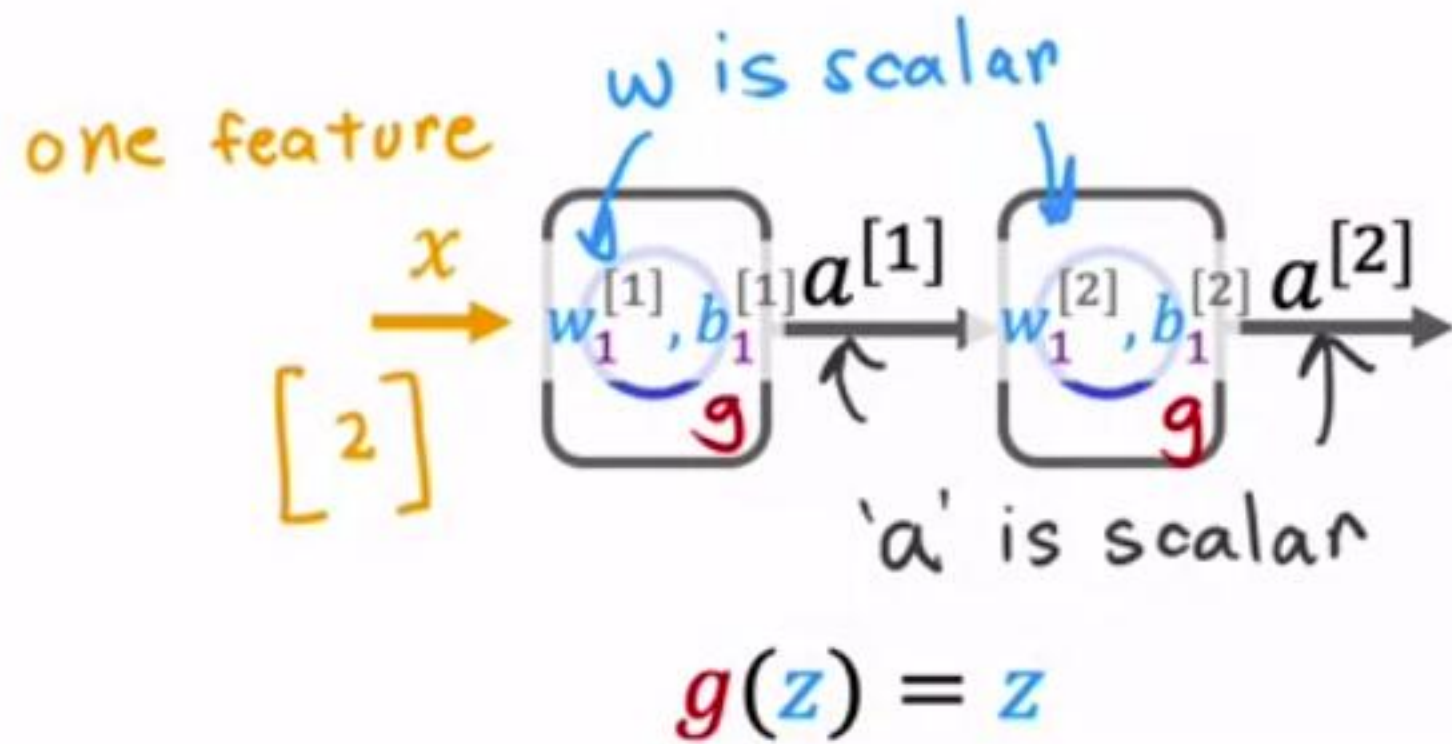 w is scalar
one feature
x
[2]
w₁^[1], b₁^[1]
g
a^[1]
w₁^[2], b₁^[2]
g
a^[2]
'a' is scalar
g(z) = z